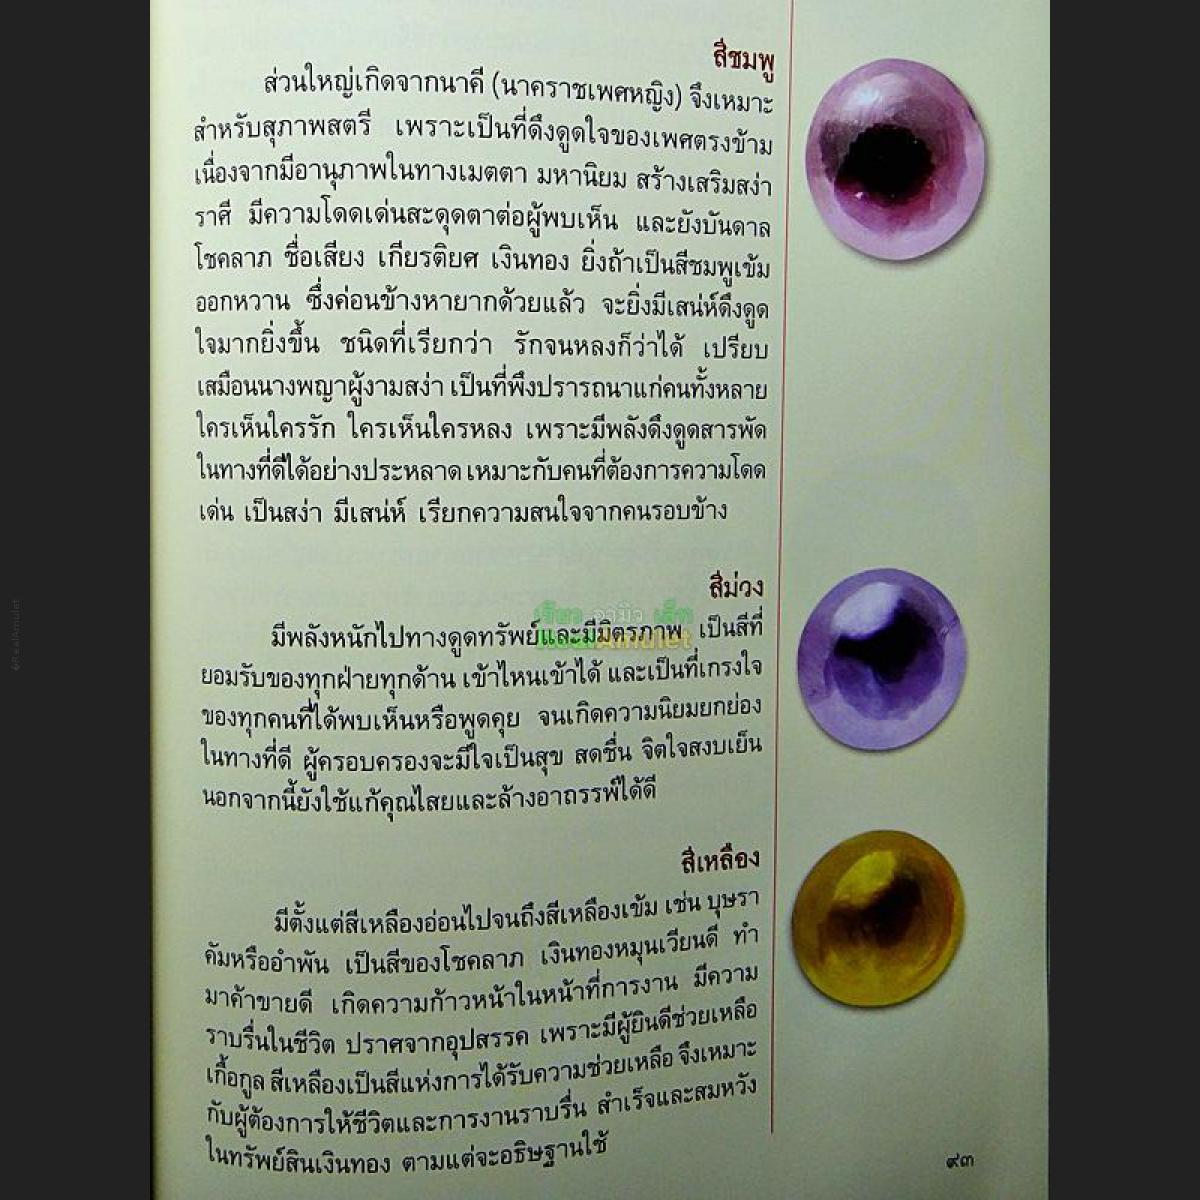 สีชมพู
ส่วนใหญ่เกิดจากนาคี (นาคราชเพศหญิง) จึงเหมาะ
สำหรับสุภาพสตรี เพราะเป็นที่ดึงดูดใจของเพศตรงข้าม
เนื่องจากมีอานุภาพในทางเมตตา มหานิยม สร้างเสริมสง่า
ราศี มีความโดดเด่นสะดุดตาต่อผู้พบเห็น และยังบันดาล
โชคลาภ ชื่อเสียง เกียรติยศ เงินทอง ยิ่งถ้าเป็นสีชมพูเข้ม
ออกหวาน ซึ่งค่อนข้างหายากด้วยแล้ว จะยิ่งมีเสน่ห์ดึงดูด
ใจมากยิ่งขึ้น ชนิดที่เรียกว่า รักจนหลงก็ว่าได้ เปรียบ
เสมือนนางพญาผู้งามสง่า เป็นที่พึงปรารถนาแก่คนทั้งหลาย
ใครเห็นใครรัก ใครเห็นใครหลง เพราะมีพลังดึงดูดสารพัด
ในทางที่ดีได้อย่างประหลาด เหมาะกับคนที่ต้องการความโดด
เด่น เป็นสง่า มีเสน่ห์ เรียกความสนใจจากคนรอบข้าง
สีม่วง
มีพลังหนักไปทางดูดทรัพย์และมีมิตรภาพ เป็นสีที่
ยอมรับของทุกฝ่ายทุกด้าน เข้าไหนเข้าได้ และเป็นที่เกรงใจ
ของทุกคนที่ได้พบเห็นหรือพูดคุย จนเกิดความนิยมยกย่อง
ในทางที่ดี ผู้ครอบครองจะมีใจเป็นสุข สดชื่น จิตใจสงบเย็น
นอกจากนี้ยังใช้แก้คุณไสยและล้างอาถรรพ์ได้ดี
สีเหลือง
มีตั้งแต่สีเหลืองอ่อนไปจนถึงสีเหลืองเข้ม เช่น บุษรา
คัมหรืออำพัน เป็นสีของโชคลาภ เงินทองหมุนเวียนดี ทำ
มาค้าขายดี เกิดความก้าวหน้าในหน้าที่การงาน มีความ
ราบรื่นในชีวิต ปราศจากอุปสรรค เพราะมีผู้ยินดีช่วยเหลือ
เกื้อกูล สีเหลืองเป็นสีแห่งการได้รับความช่วยเหลือ จึงเหมาะ
กับผู้ต้องการให้ชีวิตและการงานราบรื่น สำเร็จและสมหวัง
ในทรัพย์สินเงินทอง ตามแต่จะอธิษฐานใช้
๙๓
RealAmulet
©RealAmulet